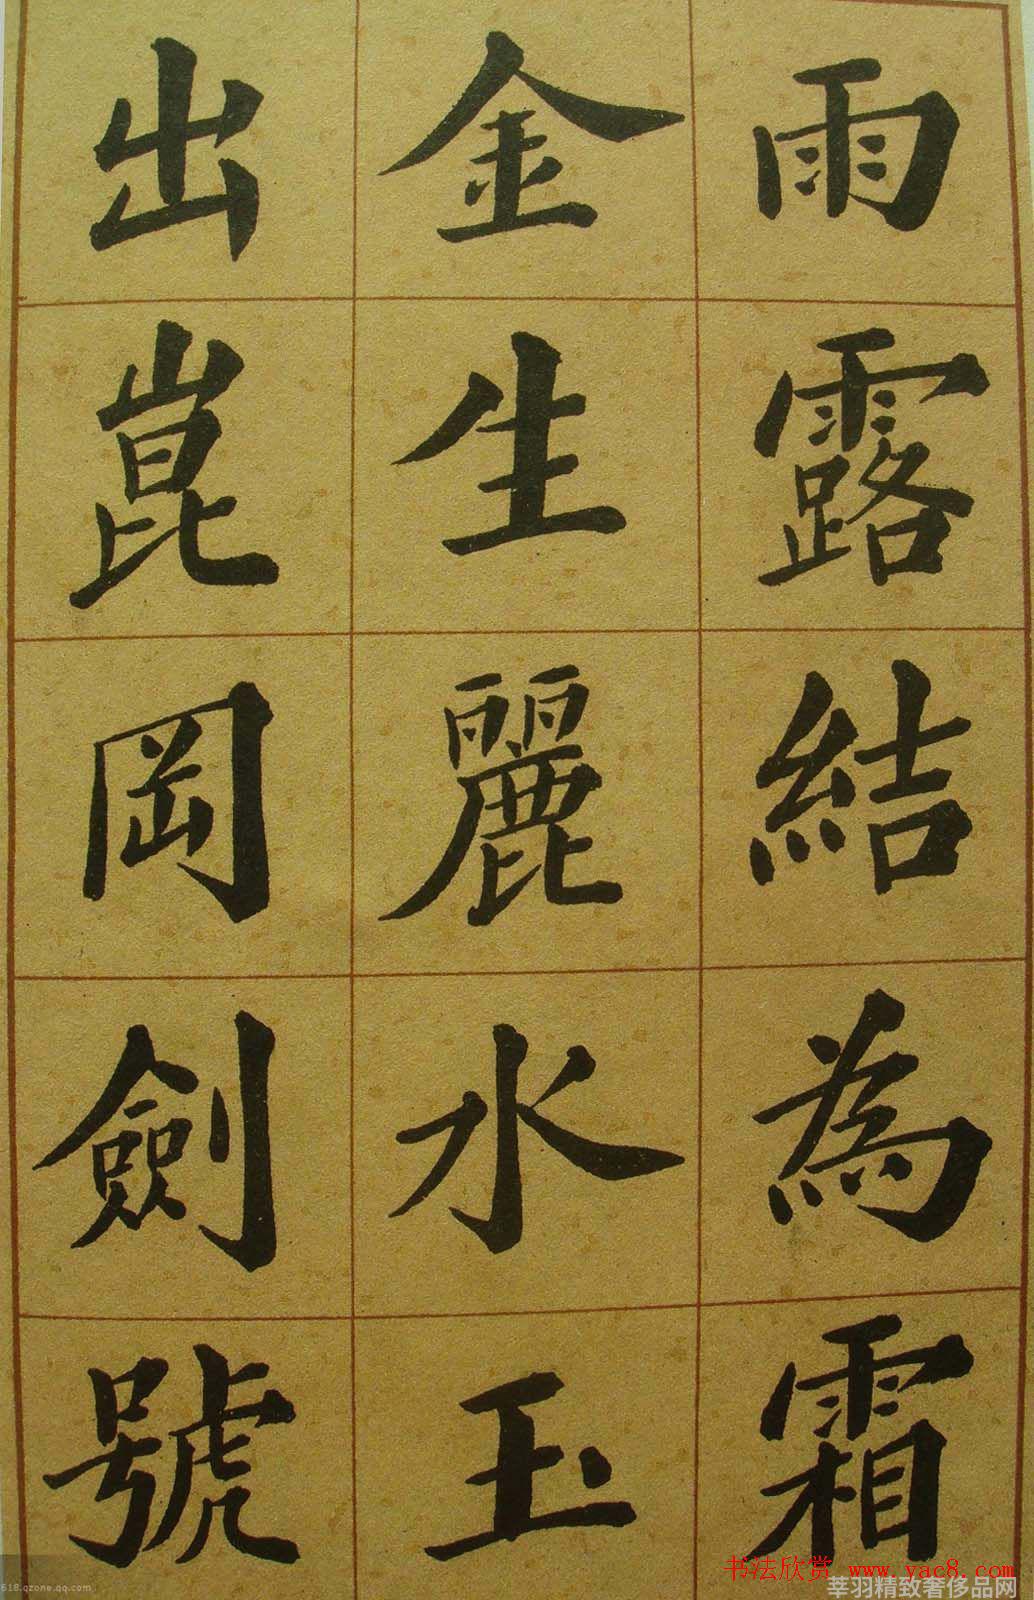 雨露結為霜
金生麗水玉
出崑岡劍號
书法欣赏 www.yac8.com
莘羽精致奢侈品网
618.qzone.qq.com